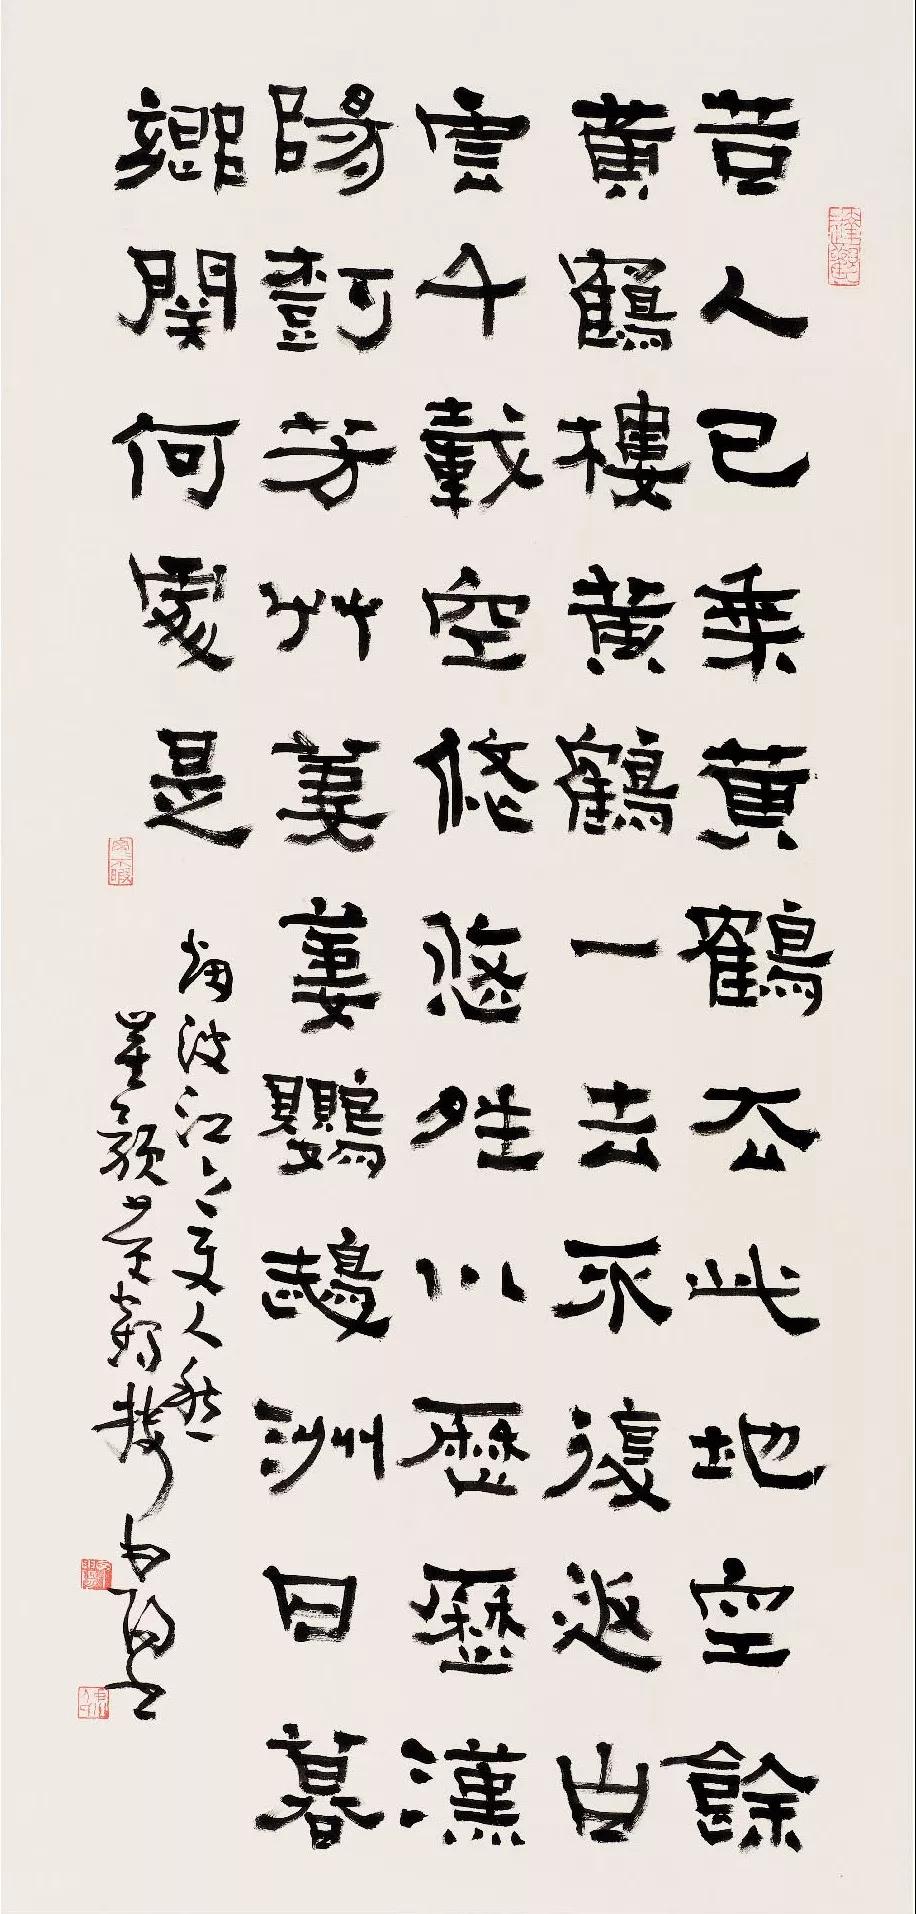 昔人已乘黃鶴去此地空餘
黃鶴樓黃鶴一去不復返白
雲千載空悠悠夝川歷歷漢
陽樹芳艸萋萋鸚鵡洲日暮
鄉關何處是
烟波江上使人愁
崔顥黃鶴樓